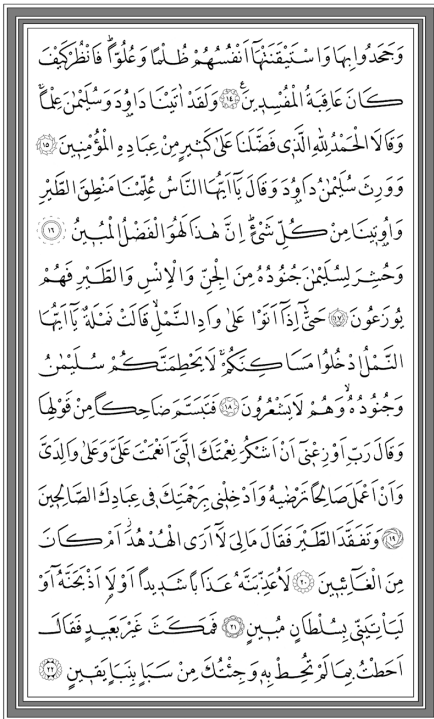 وَجَحَدُوا بِهَا وَاسْتَيْقَنَتْهَٓا اَنْفُسُهُمْ ظُلْمًا وَعُلُوًّاۜ فَانْظُرْ كَيْفَ
كَانَ عَاقِبَةُ الْمُفْسِدٖينَ ﴿١٤﴾ وَلَقَدْ اٰتَيْنَا دَاوُ۫دَ وَسُلَيْمٰنَ عِلْمًاۚ
وَقَالَا الْحَمْدُ لِلّٰهِ الَّذٖى فَضَّلَنَا عَلٰى كَثٖيرٍ مِنْ عِبَادِهِ الْمُؤْمِنٖينَ ﴿١٥﴾
وَوَرِثَ سُلَيْمٰنُ دَاوُ۫دَ وَقَالَ يَٓا اَيُّهَا النَّاسُ عُلِّمْنَا مَنْطِقَ الطَّيْرِ
وَاُوتٖينَا مِنْ كُلِّ شَیْءٍۜ اِنَّ هٰذَا لَهُوَ الْفَضْلُ الْمُبٖينُ ﴿١٦﴾
وَحُشِرَ لِسُلَيْمٰنَ جُنُودُهُ مِنَ الْجِنِّ وَالْاِنْسِ وَالطَّيْرِ فَهُمْ
يُوزَعُونَ ﴿١٧﴾ حَتّٰٓى اِذَٓا اَتَوْا عَلٰى وَادِ النَّمْلِۙ قَالَتْ نَمْلَةٌ يَٓا اَيُّهَا
النَّمْلُ ادْخُلُوا مَسَاكِنَكُمْۚ لَا يَحْطِمَنَّكُمْ سُلَيْمٰنُ
وَجُنُودُهُۙ وَهُمْ لَا يَشْعُرُونَ ﴿١٨﴾ فَتَبَسَّمَ ضَاحِكًا مِنْ قَوْلِهَا
وَقَالَ رَبِّ اَوْزِعْنٖٓى اَنْ اَشْكُرَ نِعْمَتَكَ الَّتٖٓى اَنْعَمْتَ عَلَىَّ وَعَلٰى وَالِدَىَّ
وَاَنْ اَعْمَلَ صَالِحًا تَرْضٰيهُ وَاَدْخِلْنٖى بِرَحْمَتِكَ فٖى عِبَادِكَ الصَّالِحٖينَ
﴿١٩﴾ وَتَفَقَّدَ الطَّيْرَ فَقَالَ مَالِىَ لَٓا اَرَى الْهُدْهُدَۘ اَمْ كَانَ
مِنَ الْغَٓائِبٖينَ ﴿٢٠﴾ لَاُعَذِّبَنَّهُ عَذَابًا شَدٖيدًا اَوْ لَا۬اَذْبَحَنَّهُٓ اَوْ
لَيَأْتِيَنّٖى بِسُلْطَانٍ مُبٖينٍ ﴿٢١﴾ فَمَكَثَ غَيْرَ بَعٖيدٍ فَقَالَ
اَحَطْتُ بِمَا لَمْ تُحِطْ بِهٖ وَجِئْتُكَ مِنْ سَبَأٍ بِنَبَأٍ يَقٖينٍ ﴿٢٢﴾